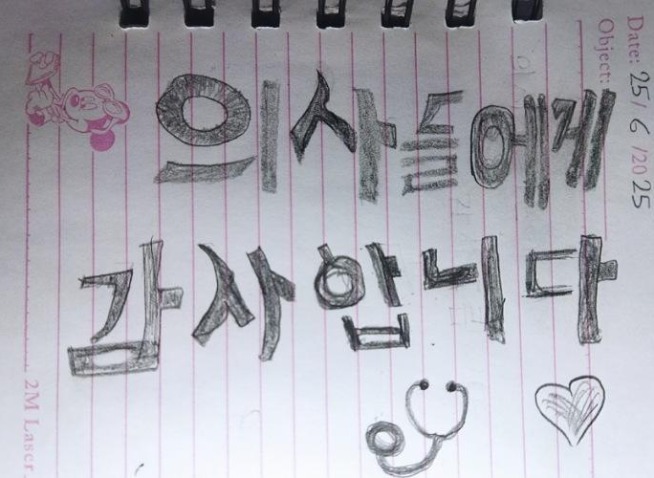 Date: 25/6/2025
Object:
의사들에게
감사합니다
2M Laser